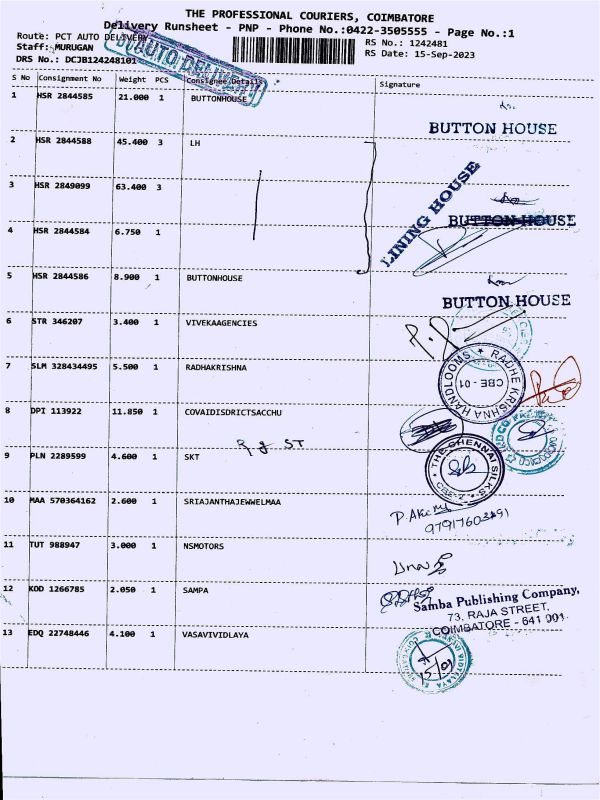 THE PROFESSIONAL COURIERS, COIMBATORE
Delivery Runsheet - PNP - Phone No.:0422-3505555 - Page No.:1
Route: PCT AUTO DELIVERY
RS No.: 1242481
Staff: MURUGAN
RS Date: 15-Sep-2023
DRS No.: DCJB124248101
AUTO DELIVERY
S No Consignment No Weight PCS Consignee Details Signature
1 HSR 2844585 21.000 1 BUTTONHOUSE
BUTTON HOUSE
2 HSR 2844588 45.400 3 LH
LINING HOUSE
3 HSR 2849099 63.400 3
BUTTON HOUSE
4 HSR 2844584 6.750 1
5 HSR 2844586 8.900 1 BUTTONHOUSE
BUTTON HOUSE
6 STR 346207 3.400 1 VIVEKAAGENCIES
7 SLM 328434495 5.500 1 RADHAKRISHNA
RADHE KRISHNA HANDLOOMS
CBE - 01
8 DPI 113922 11.850 1 COVAIDISDRICTSACCHU
9 PLN 2289599 4.600 1 SKT
THE CHENNAI SILKS
10 MAA 570364162 2.600 1 SRIAJANTHAJEWWELMAA
11 TUT 988947 3.000 1 NSMOTORS
12 KOD 1266785 2.050 1 SAMPA
Samba Publishing Company,
73, RAJA STREET,
COIMBATORE - 641 001.
13 EDQ 22748446 4.100 1 VASAVIVIDLAYA
15/09